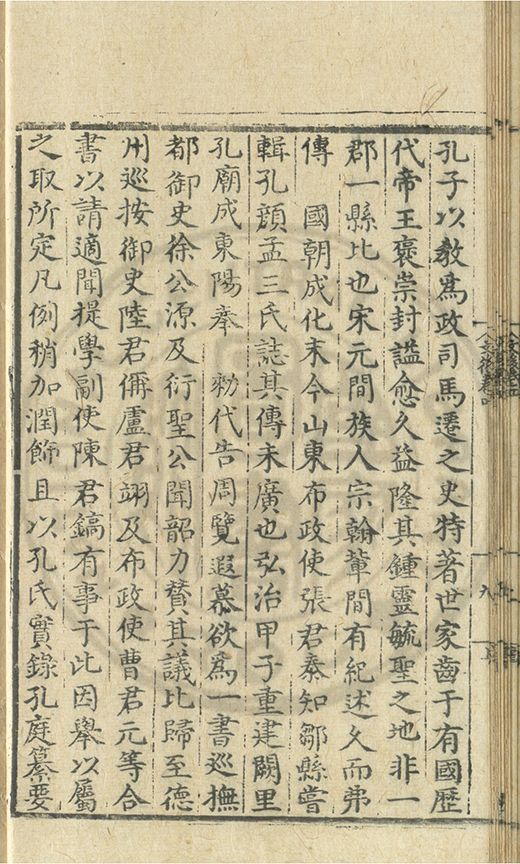 孔子以教爲政司馬遷之史特著世家齒于有國歷
代帝王褒崇封謚愈久益隆其鍾靈毓聖之地非一
郡一縣比也宋元間族人宗翰輩間有紀述久而弗
傳　國朝成化末今山東布政使張君泰知鄒縣嘗
輯孔顔孟三氏誌其傳未廣也弘治甲子重建闕里
孔廟成東陽奉　勑代告周覽遐慕欲爲一書巡撫
都御史徐公源及衍聖公聞韶力賛其議比歸至德
州巡按御史陸君偁盧君翊及布政使曹君元等合
書以請適聞提學副使陳君鎬有事于此因舉以屬
之取所定凡例稍加潤飾且以孔氏實錄孔庭纂要